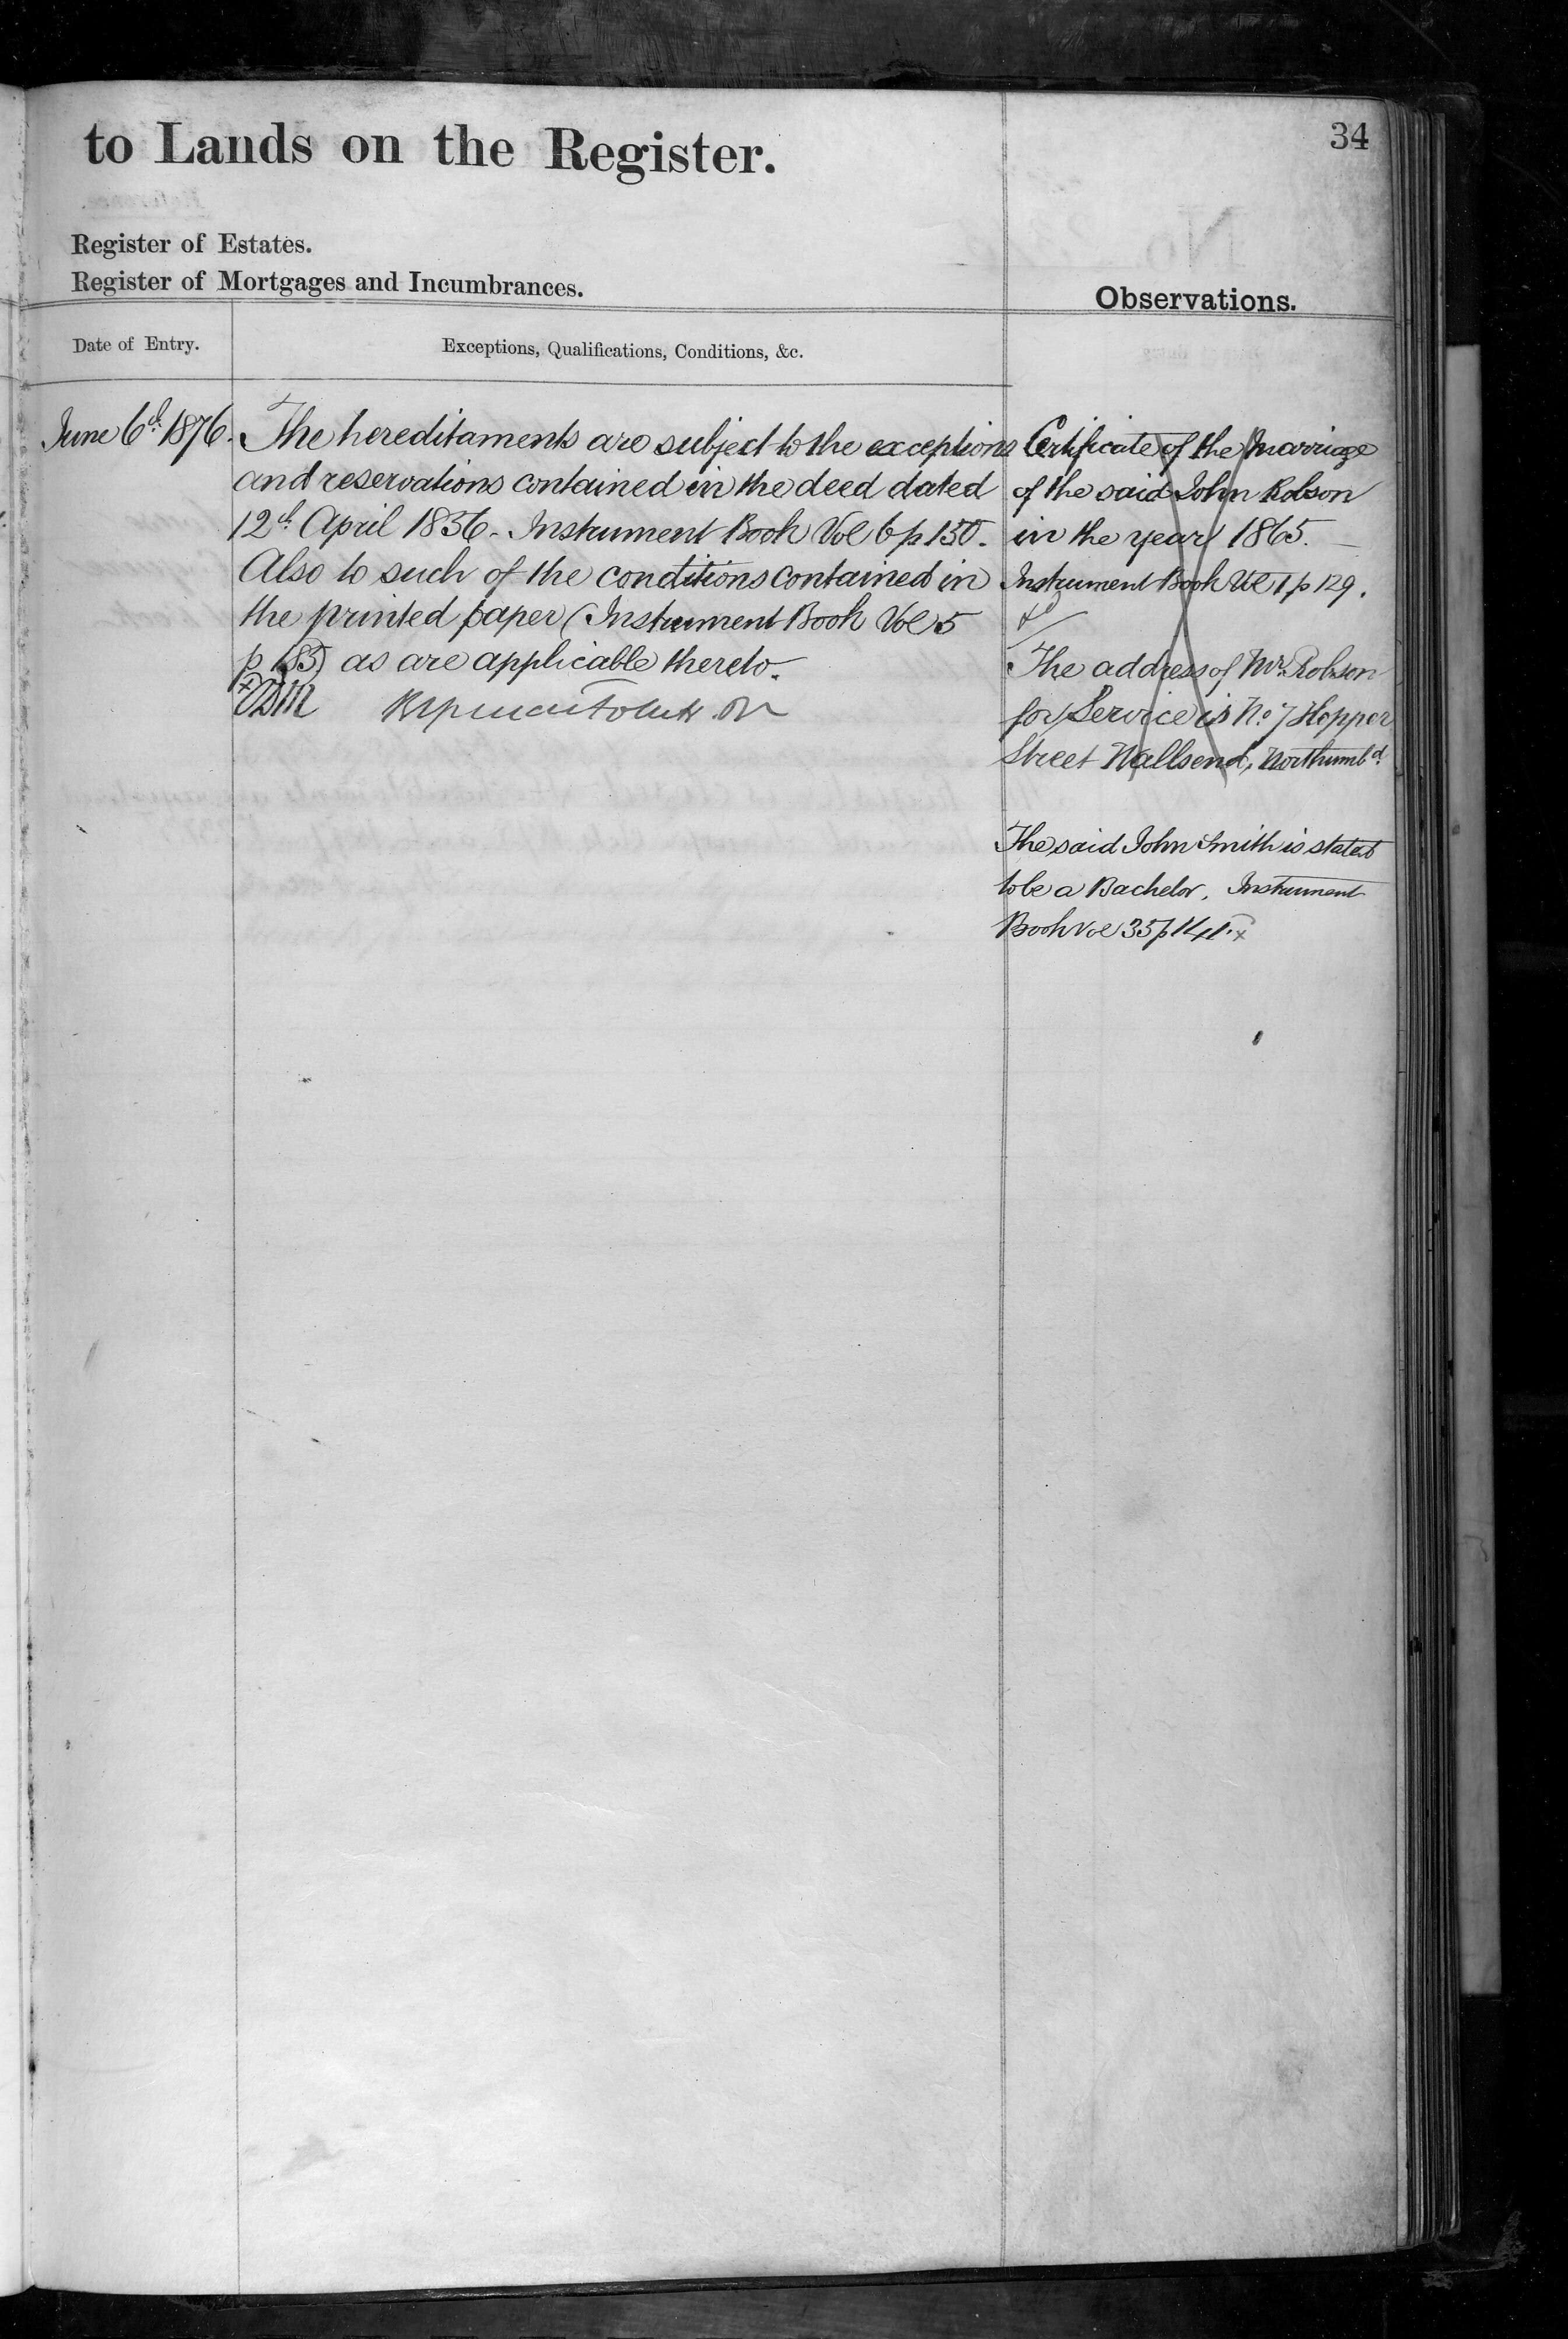 to Lands on the Register.
34
Register of Estates.
Register of Mortgages and Incumbrances.
Observations.
Date of Entry.
Exceptions, Qualifications, Conditions, &c.
June 6th 1876.
The hereditaments are subject to the exceptions
and reservations contained in the deed dated
12th April 1856. Instrument Book Vol 6 p 150.
Also to such of the conditions contained in
the printed paper (Instrument Book Vol 5
p 185) as are applicable thereto.
Certificate of the Marriage
of the said John Robson
in the year 1865.
Instrument Book Vol 1 p 129.
The address of Mr. Robson
for Service is No. 7 Hopper
Street Wallsend, Northumbd.
The said John Smith is stated
to be a Bachelor. Instrument
Book Vol 35 p 141. x